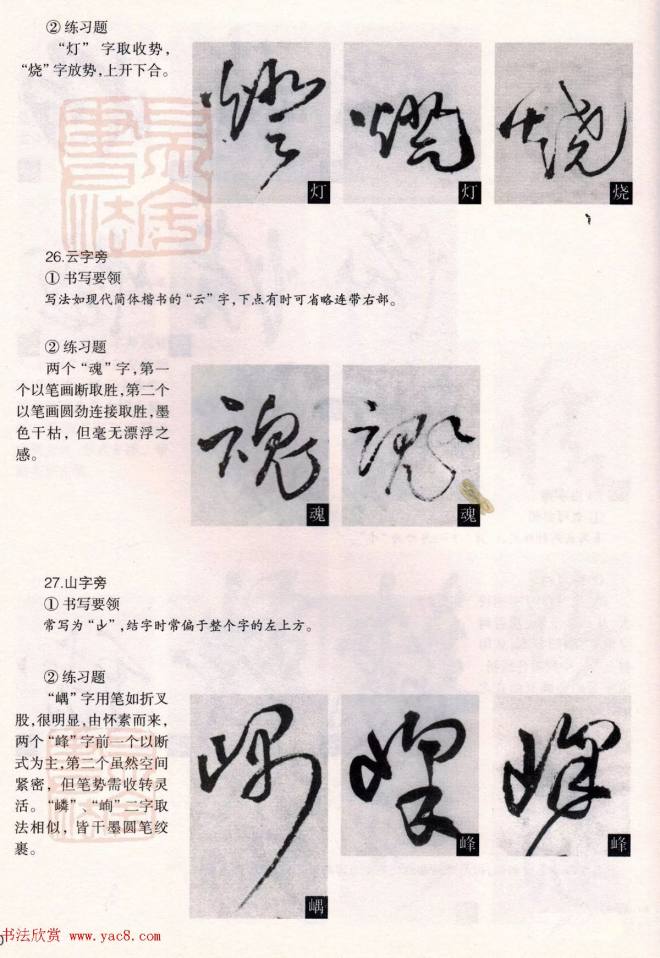 ② 练习题
“灯” 字取收势，
“烧”字放势，上开下合。
灯
灯
烧
26.云字旁
① 书写要领
写法如现代简体楷书的“云”字，下点有时可省略连带右部。
② 练习题
两个“魂”字，第一
个以笔画断取胜，第二个
以笔画圆劲连接取胜，墨
色干枯，但毫无漂浮之
感。
魂
魂
27.山字旁
① 书写要领
结字时常偏于整个字的左上方。
② 练习题
“嵎”字用笔如折叉
股，很明显，由怀素而来，
两个“峰”字前一个以断
式为主，第二个虽然空间
紧密，但笔势需收转灵
活。“嶙”、“峋”二字取
法相似，皆干墨圆笔绞
裹。
嵎
峰
峰
书法欣赏 www.yac8.com